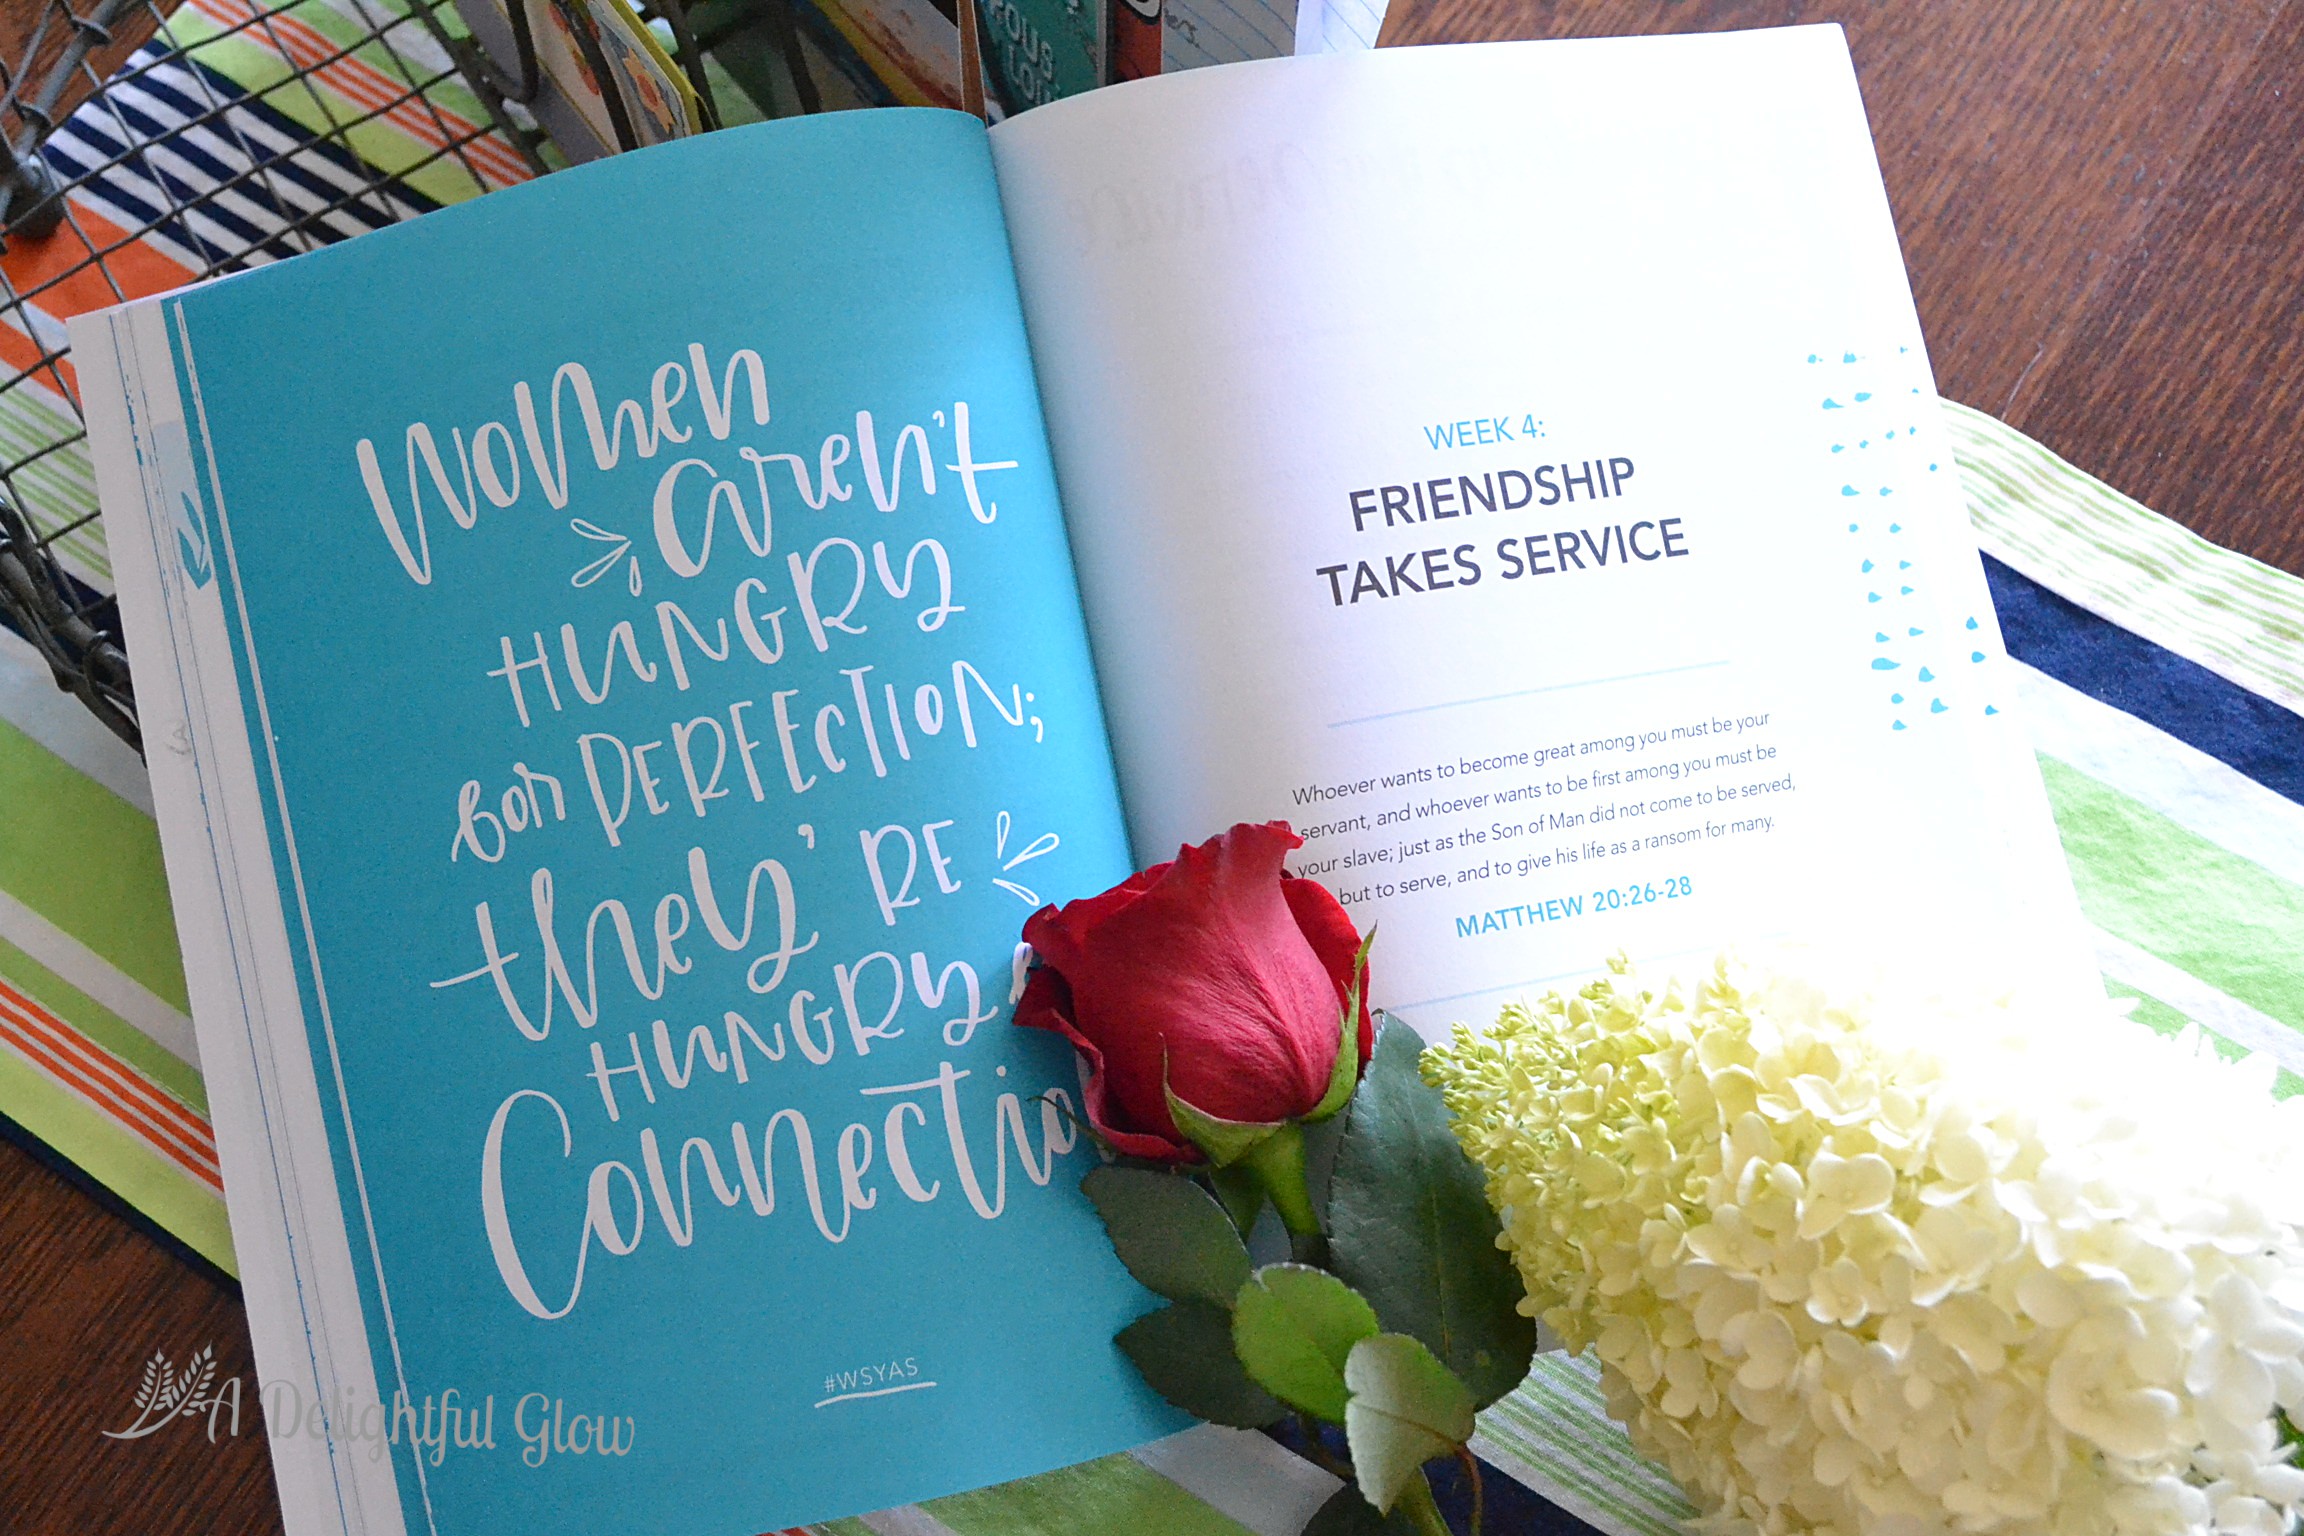 Women
aren't
HUNGRY
for PERFECTION;
they're
HUNGRY
Connectio
#WSYAS
WEEK 4:
FRIENDSHIP
TAKES SERVICE
Whoever wants to become great among you must be your
servant, and whoever wants to be first among you must be
your slave; just as the Son of Man did not come to be served,
but to serve, and to give his life as a ransom for many.
MATTHEW 20:26-28
A Delightful Glow